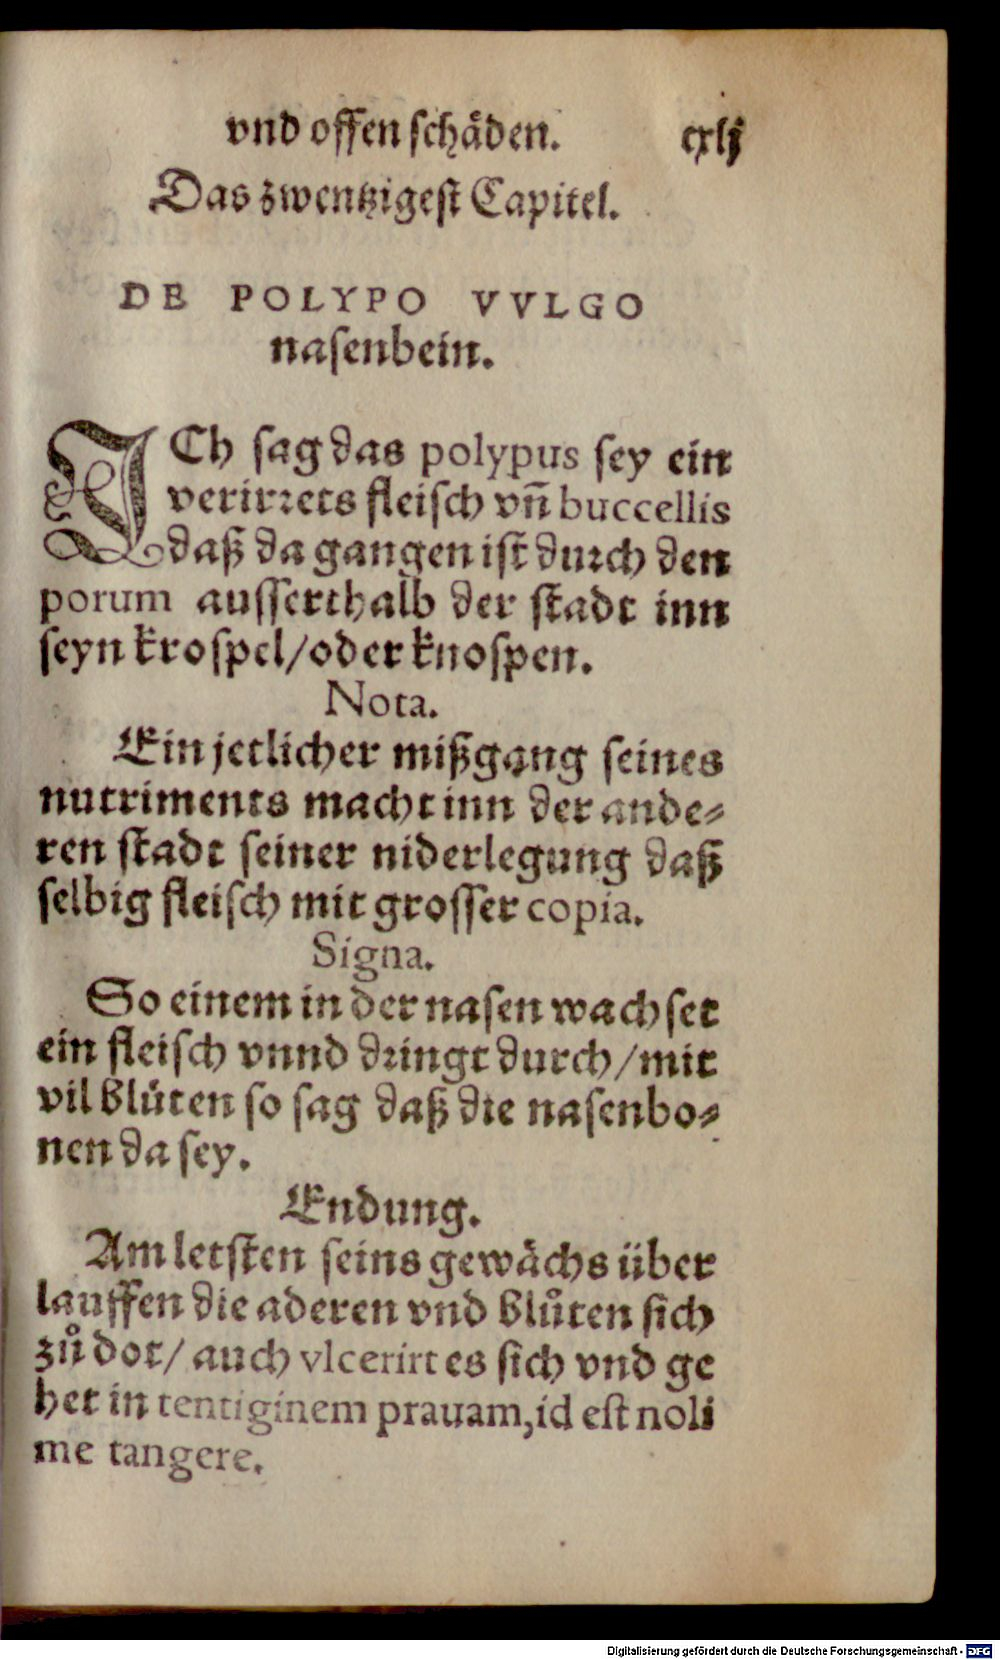 vnd offen schåden. cxlj
Das zwentzigest Capitel.
DE POLYPO VVLGO
nasenbein.
ICh sag das polypus sey ein
verirrets fleisch vñ buccellis
daß da gangen ist durch den
porum ausserthalb der stadt inn
seyn krospel/oder knospen.
Nota.
Ein jetlicher mißgang seines
nutriments macht inn der ande-
ren stadt seiner niderlegung daß
selbig fleisch mit grosser copia.
Signa.
So einem in der nasen wachset
ein fleisch vnnd dringt durch/mit
vil blüten so sag daß die nasenbo-
nen da sey.
Endung.
Am letsten seins gewächs über
lauffen die aderen vnd blůten sich
zů dot/ auch vlcerirt es sich vnd ge
het in tentiginem prauam,id est noli
me tangere.
Digitalisierung gefördert durch die Deutsche Forschungsgemeinschaft - DFG